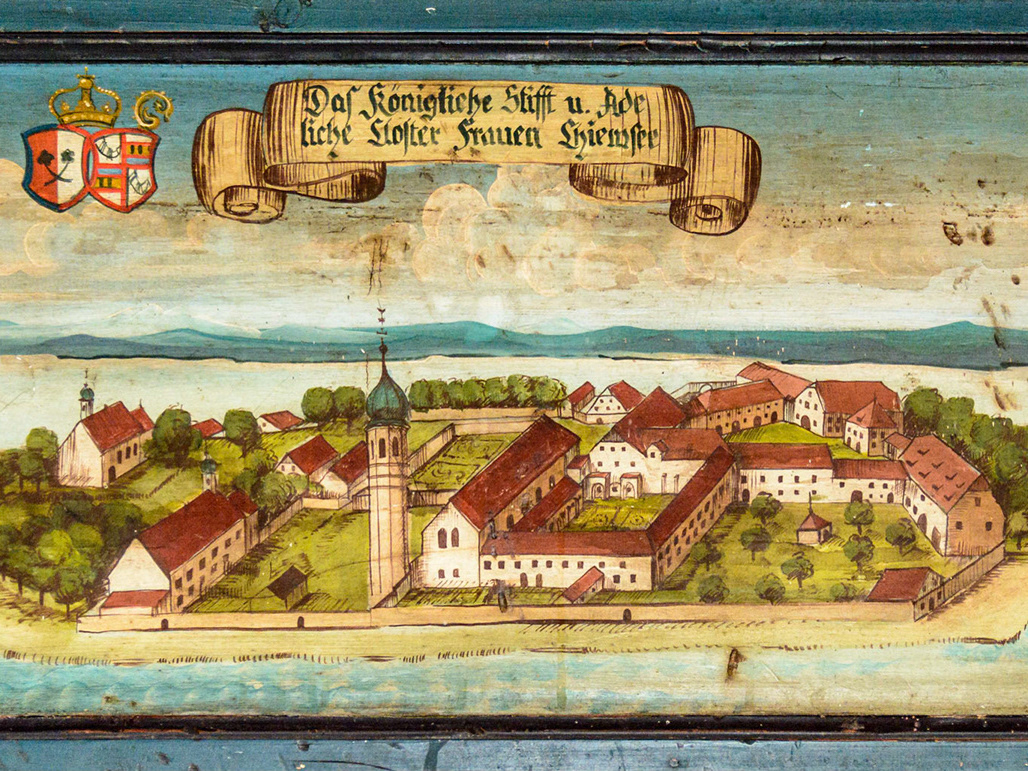 Das Königliche Stifft u. Ade
liche Closter Frauen Chiemser